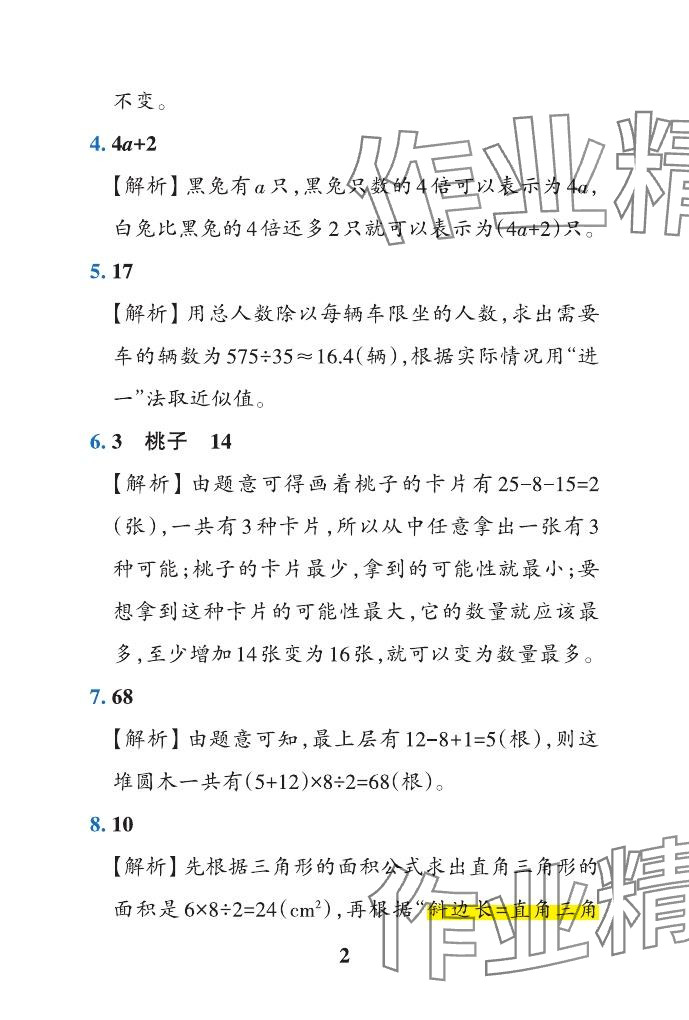 不变。
4. 4a+2
【解析】黑兔有a只,黑兔只数的4倍可以表示为4a,
白兔比黑兔的4倍还多2只就可以表示为(4a+2)只。
5. 17
【解析】用总人数除以每辆车限坐的人数,求出需要
车的辆数为575÷35≈16.4(辆),根据实际情况用“进
一”法取近似值。
6. 3 桃子 14
【解析】由题意可得画着桃子的卡片有25-8-15=2
(张),一共有3种卡片,所以从中任意拿出一张有3
种可能;桃子的卡片最少,拿到的可能性就最小;要
想拿到这种卡片的可能性最大,它的数量就应该最
多,至少增加14张变为16张,就可以变为数量最多。
7. 68
【解析】由题意可知,最上层有12-8+1=5(根),则这
堆圆木一共有(5+12)×8÷2=68(根)。
8. 10
【解析】先根据三角形的面积公式求出直角三角形的
面积是6×8÷2=24(cm²),再根据“斜边长=直角三角
2
作业精
作业精